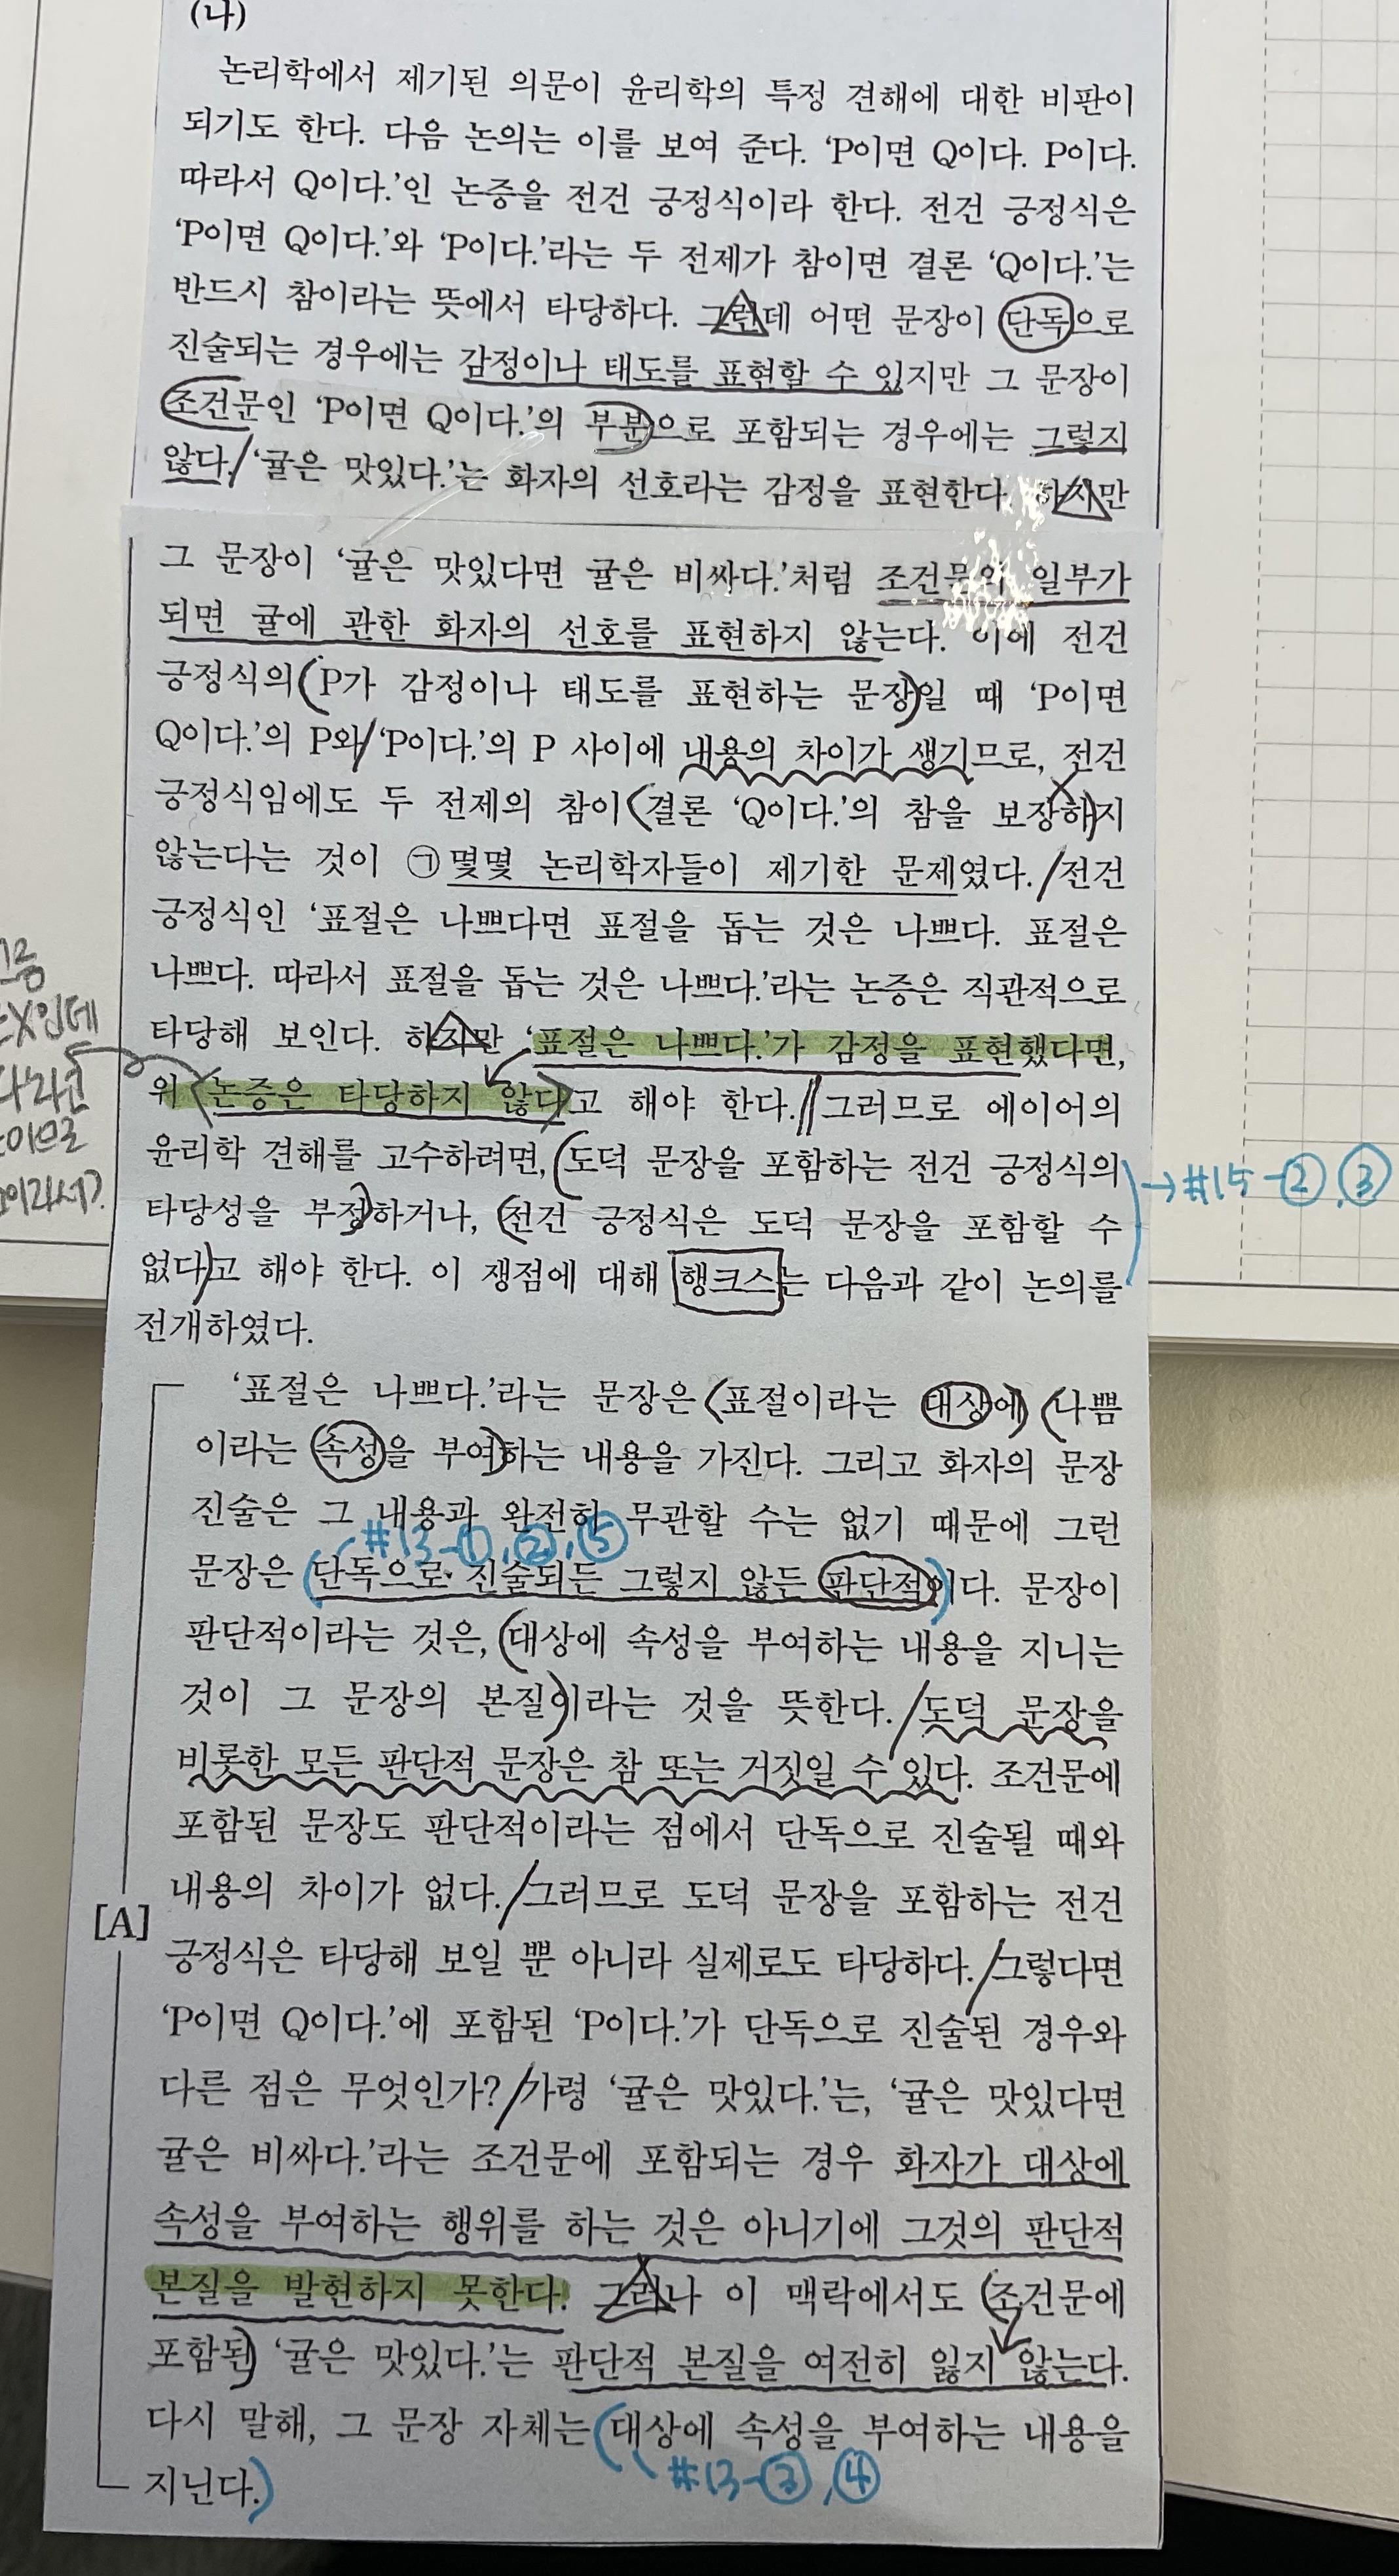 (나)
논리학에서 제기된 의문이 윤리학의 특정 견해에 대한 비판이
되기도 한다. 다음 논의는 이를 보여 준다. ‘P이면 Q이다. P이다.
따라서 Q이다.’인 논증을 전건 긍정식이라 한다. 전건 긍정식은
‘P이면 Q이다.’와 ‘P이다.’라는 두 전제가 참이면 결론 ‘Q이다.’는
반드시 참이라는 뜻에서 타당하다. 그런데 어떤 문장이 단독으로
진술되는 경우에는 감정이나 태도를 표현할 수 있지만 그 문장이
조건문인 ‘P이면 Q이다.’의 부분으로 포함되는 경우에는 그렇지
않다. ‘귤은 맛있다.’는 화자의 선호라는 감정을 표현한다. 하지만
그 문장이 ‘귤은 맛있다면 귤은 비싸다.’처럼 조건문의 일부가
되면 귤에 관한 화자의 선호를 표현하지 않는다. 이에 전건
긍정식의 P가 감정이나 태도를 표현하는 문장일 때 ‘P이면
Q이다.’의 P와 ‘P이다.’의 P 사이에 내용의 차이가 생기므로, 전건
긍정식임에도 두 전제의 참이 결론 ‘Q이다.’의 참을 보장하지
않는다는 것이 ㉠몇몇 논리학자들이 제기한 문제였다. 전건
긍정식인 ‘표절은 나쁘다면 표절을 돕는 것은 나쁘다. 표절은
나쁘다. 따라서 표절을 돕는 것은 나쁘다.’라는 논증은 직관적으로
타당해 보인다. 하지만 ‘표절은 나쁘다.’가 감정을 표현했다면,
위 논증은 타당하지 않다고 해야 한다. 그러므로 에이어의
윤리학 견해를 고수하려면, 도덕 문장을 포함하는 전건 긍정식의
→ #15-②,③
타당성을 부정하거나, 전건 긍정식은 도덕 문장을 포함할 수
없다고 해야 한다. 이 쟁점에 대해 행크스는 다음과 같이 논의를
전개하였다.
‘표절은 나쁘다.’라는 문장은 표절이라는 대상에 나쁨
이라는 속성을 부여하는 내용을 가진다. 그리고 화자의 문장
진술은 그 내용과 완전히 무관할 수는 없기 때문에 그런
#13-①,②,⑤
문장은 단독으로 진술되든 그렇지 않든 판단적이다. 문장이
판단적이라는 것은, 대상에 속성을 부여하는 내용을 지니는
것이 그 문장의 본질이라는 것을 뜻한다. 도덕 문장을
비롯한 모든 판단적 문장은 참 또는 거짓일 수 있다. 조건문에
포함된 문장도 판단적이라는 점에서 단독으로 진술될 때와
내용의 차이가 없다. 그러므로 도덕 문장을 포함하는 전건
[A]
긍정식은 타당해 보일 뿐 아니라 실제로도 타당하다. 그렇다면
‘P이면 Q이다.’에 포함된 ‘P이다.’가 단독으로 진술된 경우와
다른 점은 무엇인가? 가령 ‘귤은 맛있다.’는, ‘귤은 맛있다면
귤은 비싸다.’라는 조건문에 포함되는 경우 화자가 대상에
속성을 부여하는 행위를 하는 것은 아니기에 그것의 판단적
본질을 발현하지 못한다. 그러나 이 맥락에서도 조건문에
포함된 ‘귤은 맛있다.’는 판단적 본질을 여전히 잃지 않는다.
다시 말해, 그 문장 자체는 대상에 속성을 부여하는 내용을
지닌다.
#13-③,④